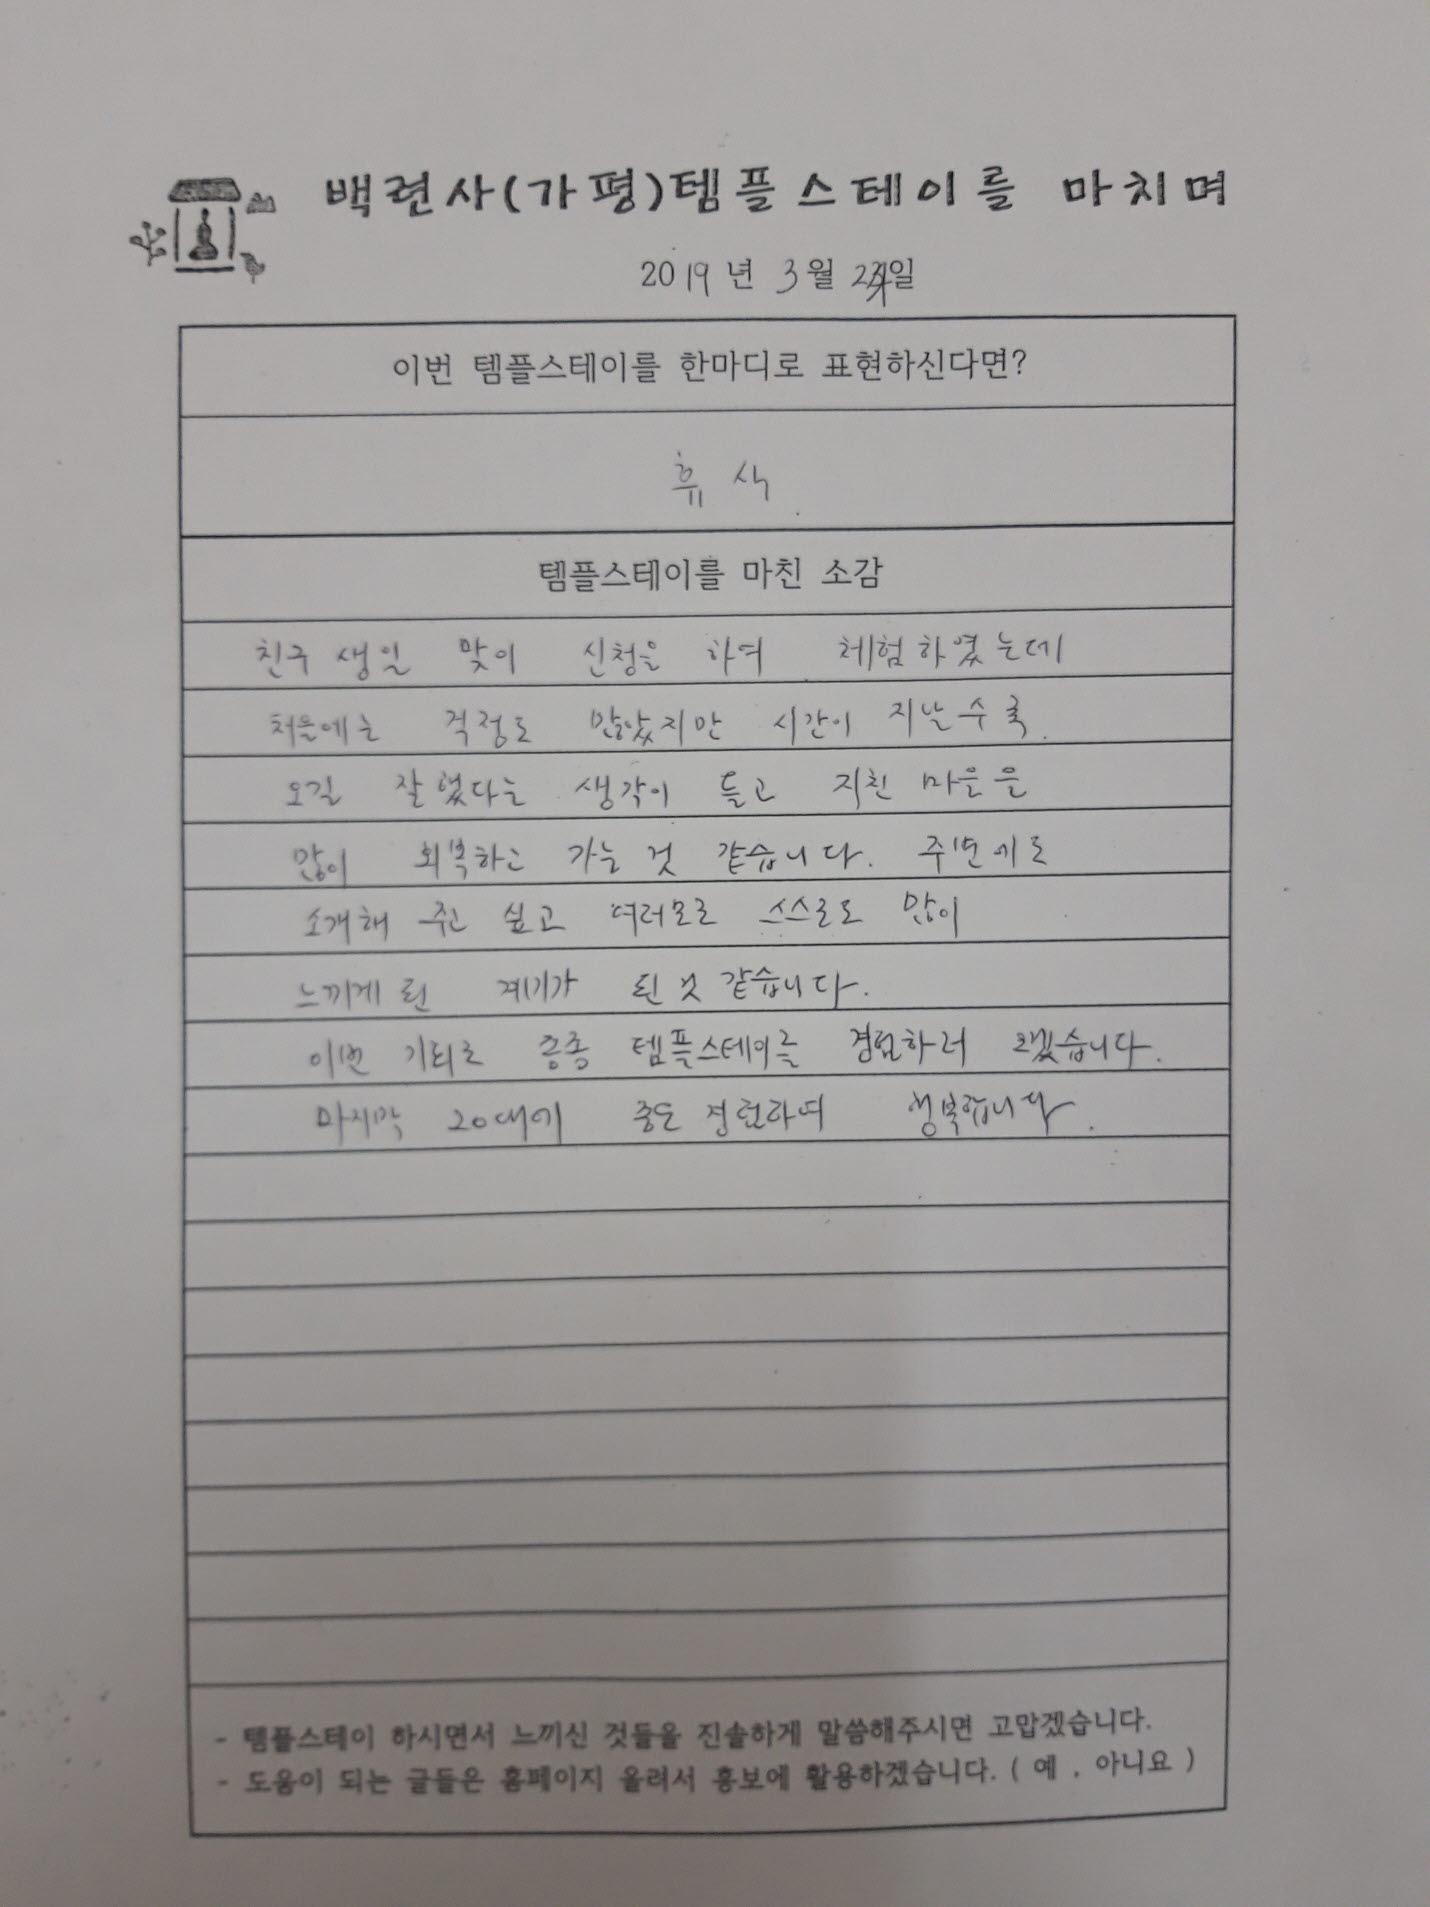 백련사(가평)템플스테이를 마치며
2019년 3월 24일
이번 템플스테이를 한마디로 표현하신다면?
휴식
템플스테이를 마친 소감
친구 생일 맞이 신청을 하여 체험하였는데
처음에는 걱정도 많았지만 시간이 지날수록
오길 잘했다는 생각이 들고 지친 마음을
많이 회복하고 가는 것 같습니다. 주변에도
소개해 주고 싶고 여러모로 스스로도 많이
느끼게 된 계기가 된 것 같습니다.
이번 기회로 종종 템플스테이를 경험하러 오겠습니다.
마지막 20대에 좋은 경험하여 행복합니다.
- 템플스테이 하시면서 느끼신 것들을 진솔하게 말씀해주시면 고맙겠습니다.
- 도움이 되는 글들은 홈페이지 올려서 홍보에 활용하겠습니다. ( 예 , 아니요 )